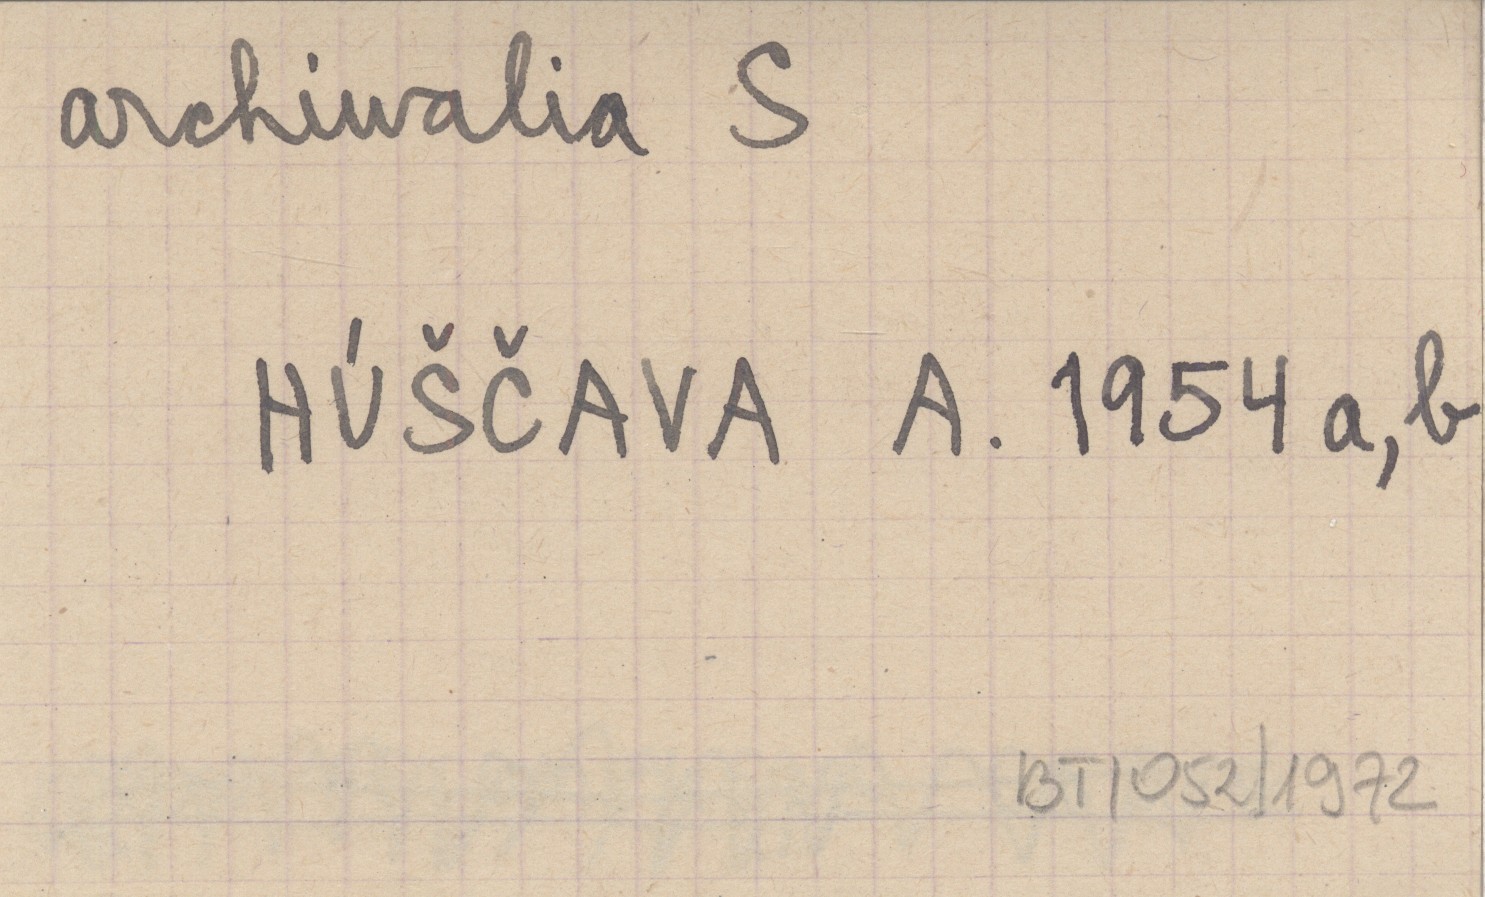 archiwalia S
HÚŠČAVA A. 1954 a, b
BT/052/1972